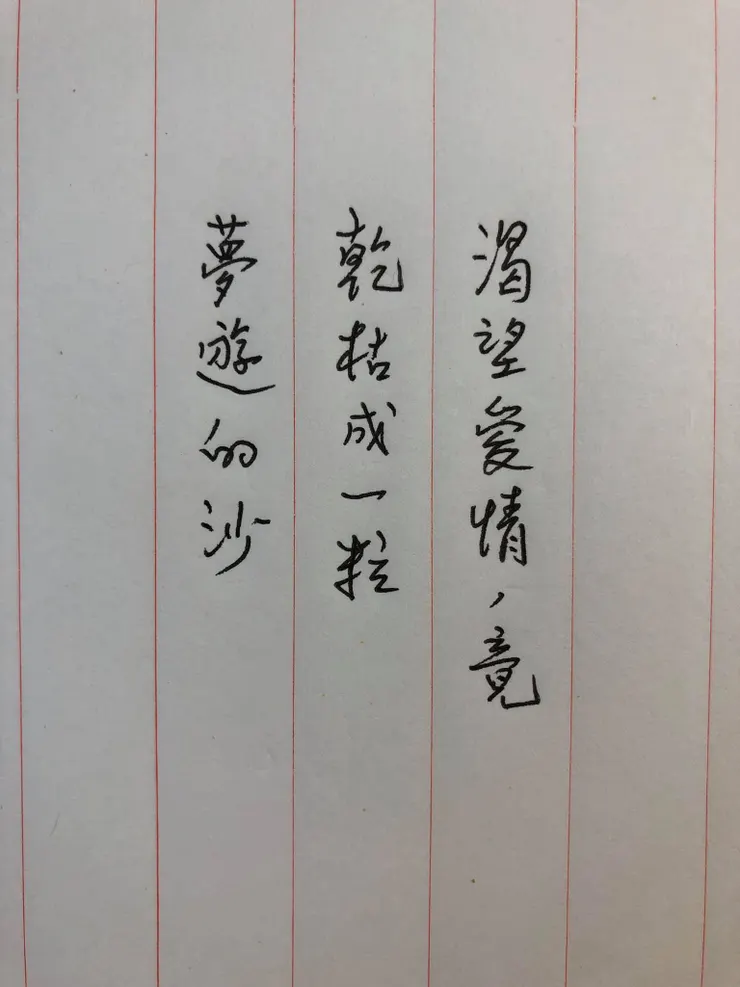 渴望愛情，竟
乾枯成一粒
夢遊的沙